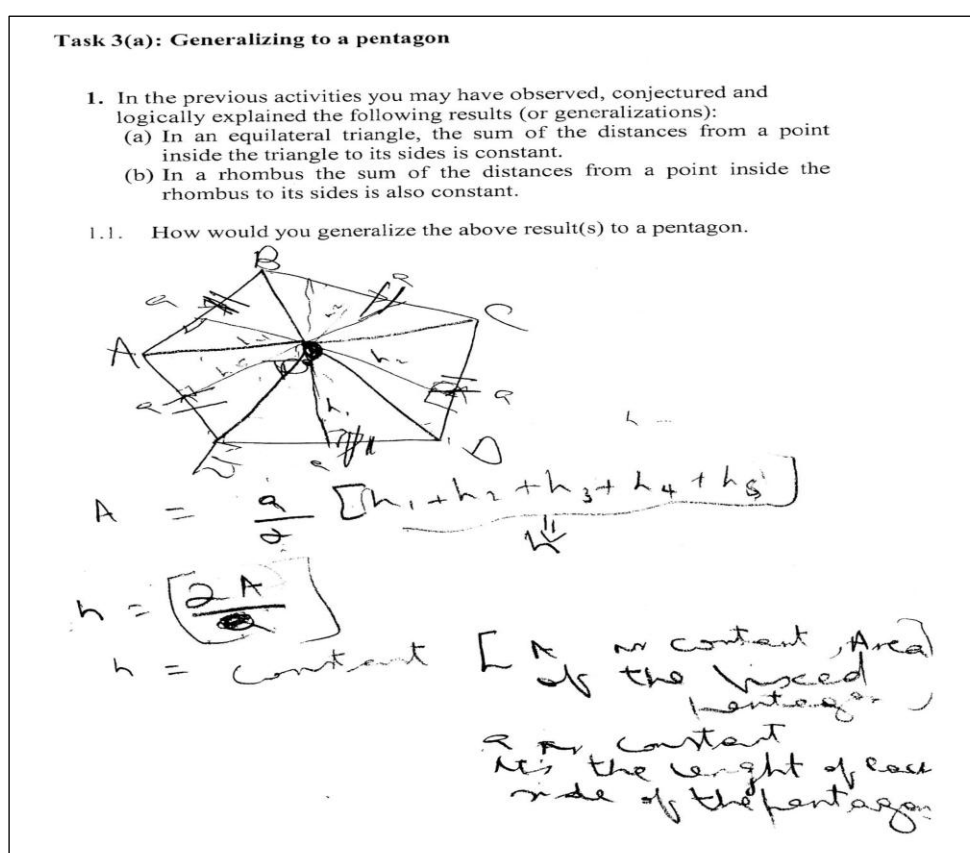 Task 3(a): Generalizing to a pentagon
1. In the previous activities you may have observed, conjectured and
logically explained the following results (or generalizations):
(a) In an equilateral triangle, the sum of the distances from a point
inside the triangle to its sides is constant.
(b) In a rhombus the sum of the distances from a point inside the
rhombus to its sides is also constant.
1.1. How would you generalize the above result(s) to a pentagon.
B
a
a
C
A
h2
a
a
h1
D
A = a/2 [h1 + h2 + h3 + h4 + h5]
h
h = [2A/a]
h = constant [A is contant, Area
of the fixced
pentagon]
a is constant
it is the lenght of each
side of the pentagon